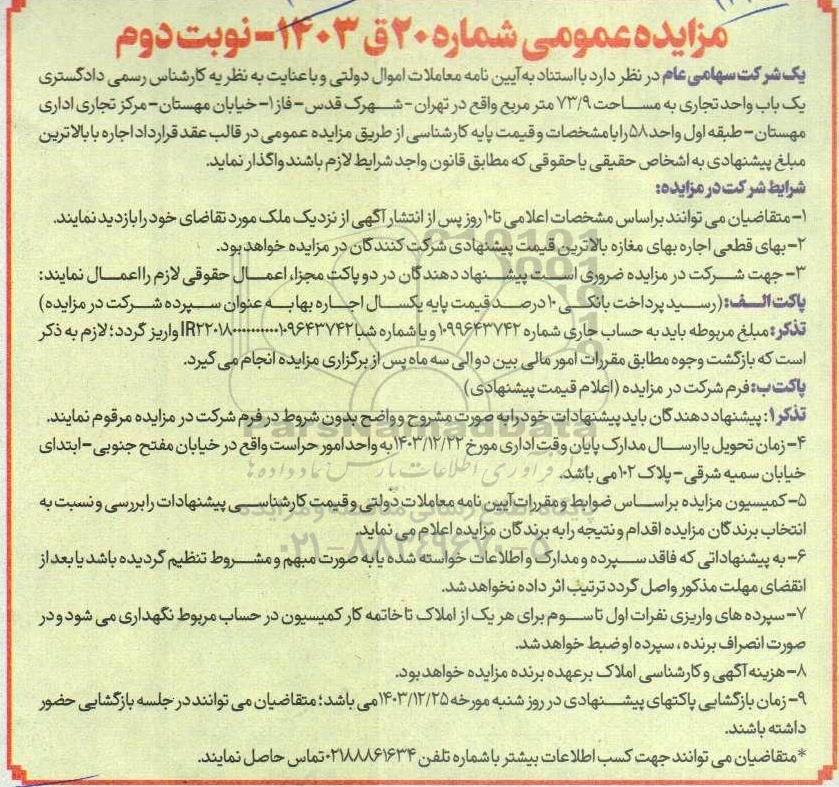 مزایده عمومی شماره ۲۰ق ۱۴۰۳- نوبت دوم
یک شرکت سهامی عام در نظر دارد با استناد به آیین نامه معاملات اموال دولتی و با عنایت به نظریه کارشناس رسمی دادگستری
یک باب واحد تجاری به مساحت ۷۳/۹ متر مربع واقع در تهران -شهرک قدس- فاز ۱- خیابان مهستان- مرکز تجاری اداری
مهستان- طبقه اول واحد ۵۸ را با مشخصات و قیمت پایه کارشناسی از طریق مزایده عمومی در قالب عقد قرارداد اجاره با بالاترین
مبلغ پیشنهادی به اشخاص حقیقی یا حقوقی که مطابق قانون واجد شرایط لازم باشند واگذار نماید.
شرایط شرکت در مزایده:
۱- متقاضیان می توانند براساس مشخصات اعلامی تا ۱۰ روز پس از انتشار آگهی از نزدیک ملک مورد تقاضای خود را بازدید نمایند.
۲- بهای قطعی اجاره بهای مغازه بالاترین قیمت پیشنهادی شرکت کنندگان در مزایده خواهد بود.
۳- جهت شرکت در مزایده ضروری است پیشنهاد دهندگان در دو پاکت مجزا، اعمال حقوقی لازم را اعمال نمایند:
پاکت الف: (رسید پرداخت بانکی ۱۰ درصد قیمت پایه یکسال اجاره بها به عنوان سپرده شرکت در مزایده)
تذکر: مبلغ مربوطه باید به حساب جاری شماره ۱۰۹۹۶۴۳۷۴۲ و یا شماره شبا واریز گردد؛ لازم به ذکر
است که بازگشت وجوه مطابق مقررات امور مالی بین دو الی سه ماه پس از برگزاری مزایده انجام می گیرد.
پاکت ب: فرم شرکت در مزایده (اعلام قیمت پیشنهادی)
تذکر۱: پیشنهاد دهندگان باید پیشنهادات خود را به صورت مشروح و واضح بدون شروط در فرم شرکت در مزایده مرقوم نمایند.
۴- زمان تحویل یا ارسال مدارک پایان وقت اداری مورخ ۱۴۰۳/۱۲/۲۲ به واحد امور حراست واقع در خیابان مفتح جنوبی- ابتدای
خیابان سمیه شرقی- پلاک ۱۰۲ می باشد.
۵- کمیسیون مزایده براساس ضوابط و مقررات آیین نامه معاملات دولتی و قیمت کارشناسی پیشنهادات را بررسی و نسبت به
انتخاب برندگان مزایده اقدام و نتیجه را به برندگان مزایده اعلام می نماید.
۶- به پیشنهاداتی که فاقد سپرده و مدارک و اطلاعات خواسته شده یا به صورت مبهم و مشروط تنظیم گردیده باشد یا بعد از
انقضای مهلت مذکور واصل گردد ترتیب اثر داده نخواهد شد.
۷- سپرده های واریزی نفرات اول تا سوم برای هر یک از املاک تا خاتمه کار کمیسیون در حساب مربوط نگهداری می شود و در
صورت انصراف برنده، سپرده او ضبط خواهد شد.
۸- هزینه آگهی و کارشناسی املاک برعهده برنده مزایده خواهد بود.
۹- زمان بازگشایی پاکتهای پیشنهادی در روز شنبه مورخه ۱۴۰۳/۱۲/۲۵ می باشد؛ متقاضیان می توانند در جلسه بازگشایی حضور
داشته باشند.
*متقاضیان می توانند جهت کسب اطلاعات بیشتر با شماره تلفن ۰۲۱۸۸۸۶۱۶۳۴ تماس حاصل نمایند.